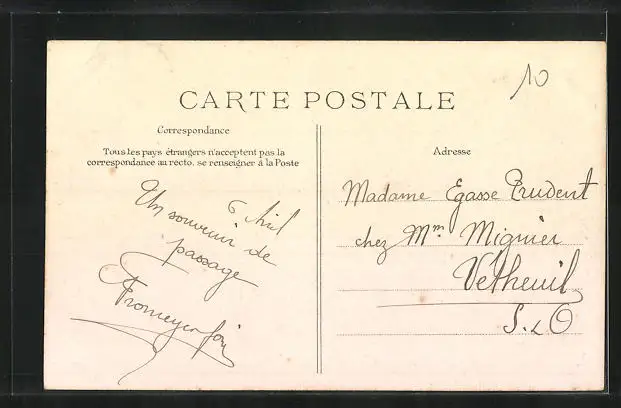 10
CARTE POSTALE
Correspondance
Tous les pays étrangers n'acceptent pas la
correspondance au recto. se renseigner à la Poste
Adresse
6
Un souvenir de
passage
Madame Egasse Prudent
chez Mme Mignier
Vetheuil
S. & O